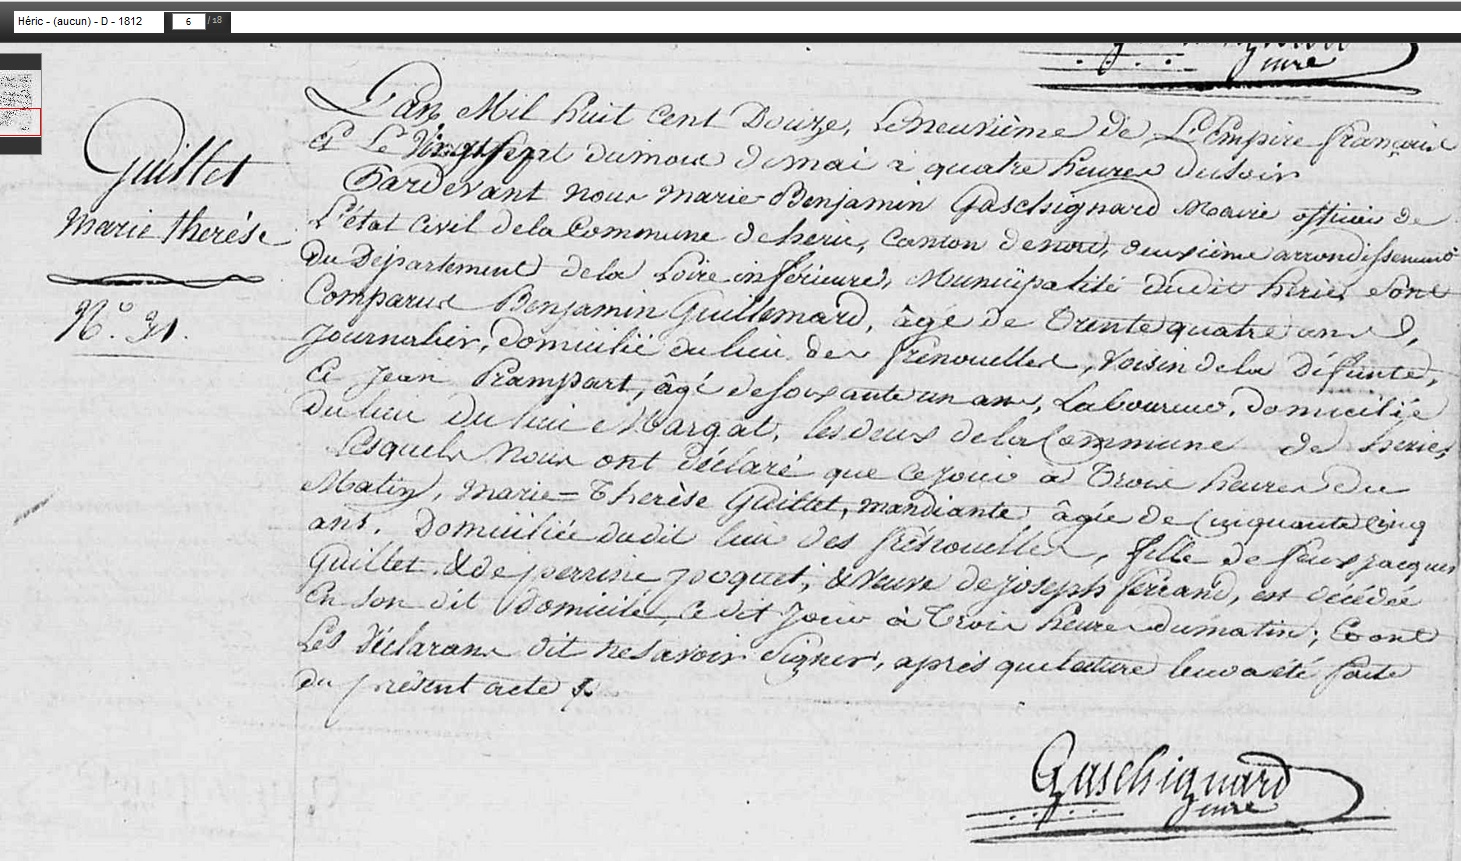 Héric - (aucun) - D - 1812
6 / 18
Guillet
Marie therèse
N.° 31.
L'an Mil huit Cent Douze, Le neuvième de L'Empire français
Et Le Vingt sept du mois de mai à quatre heures du soir
Pardevant nous Marie Benjamin Gaschignard Maire officier de
L'état Civil de la Commune de héric, Canton de nort, deuxième arrondissement
Du Département de la Loire inférieure, Municipalité dudit héric, sont
Comparus Benjamin Guillemard, âgé de Trente quatre ans,
journalier, domicilié du lieu des frénouilles, Voisin de la défunte,
Et Jean Prampart, âgé de soixante un ans, Laboureur, domicilié
du lieu du lieu Margat, les deux de la Commune de héric,
Lesquels Nous ont déclaré que ce jour à Trois heures du
Matin, Marie-Therèse Guillet, mandiante âgée de Cinquante Cinq
ans. Domiciliée dudit lieu des frénouilles, fille de feux jacques
Guillet & de perrine poquet, & Veuve de joseph friand, est décédée
En son dit domicile, ce dit jour à Trois heures du matin; Et ont
Les déclarans dit ne savoir signer, après que lecture leur a été faite
du présent acte
Gaschignard
mire